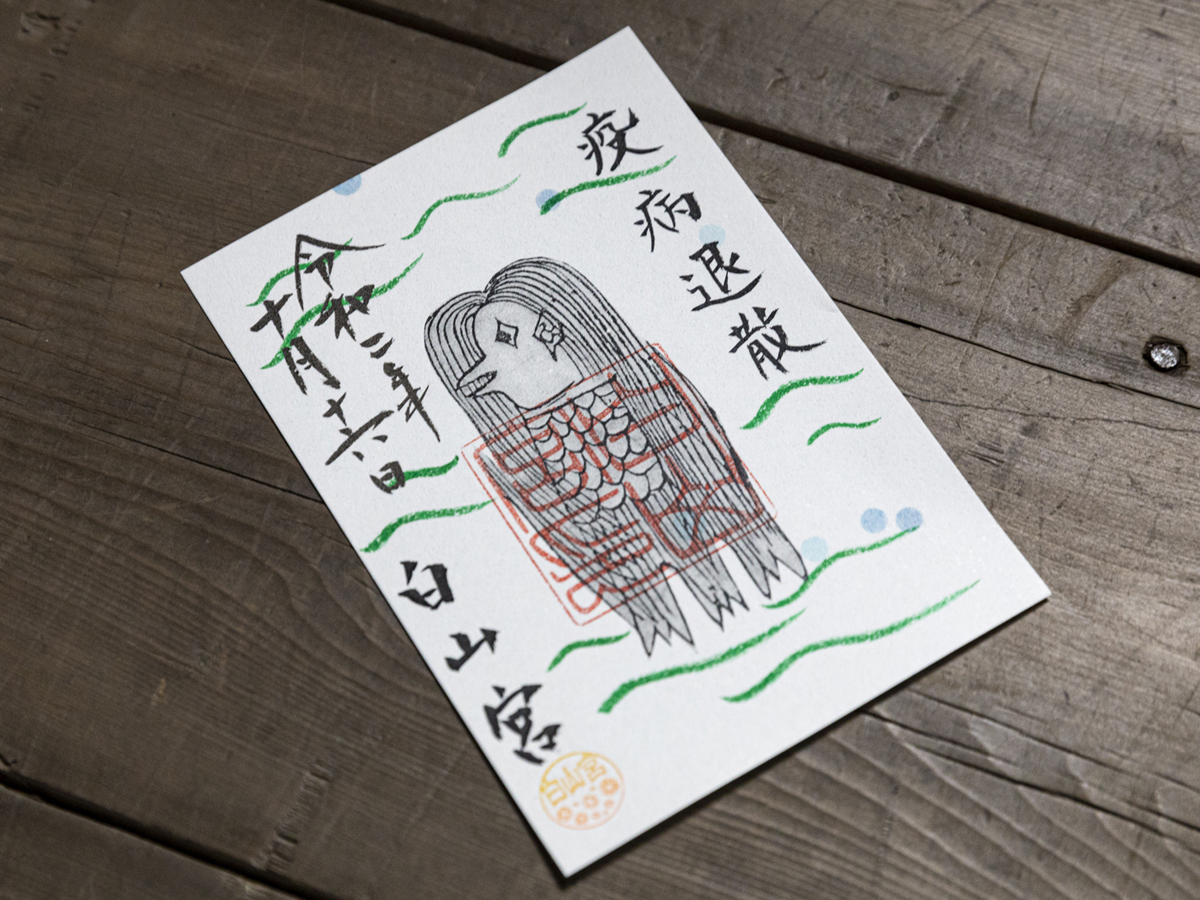 疫病退散
令和二年
十月十六日
白山宮
白山宮